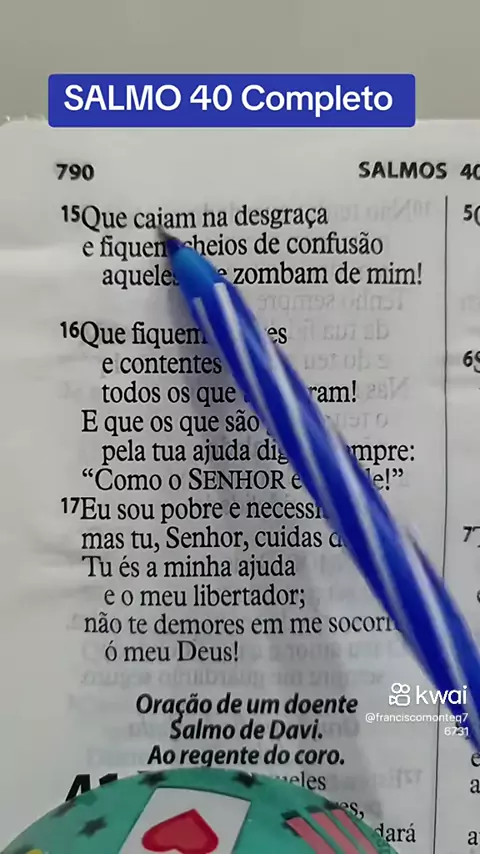 SALMO 40 Completo
790
SALMOS 40
15Que caiam na desgraça
e fiquem cheios de confusão
aqueles zombam de mim!
16Que fiquem
e contentes
todos os que
E que os que são
pela tua ajuda
“Como o SENHOR é
17Eu sou pobre e
mas tu, Senhor, cuidas
Tu és a minha ajuda
e o meu libertador;
não te demores em me
ó meu Deus!
Oração de um doente
Salmo de Davi.
Ao regente do coro.
kwai
@franciscomonteq7
6731